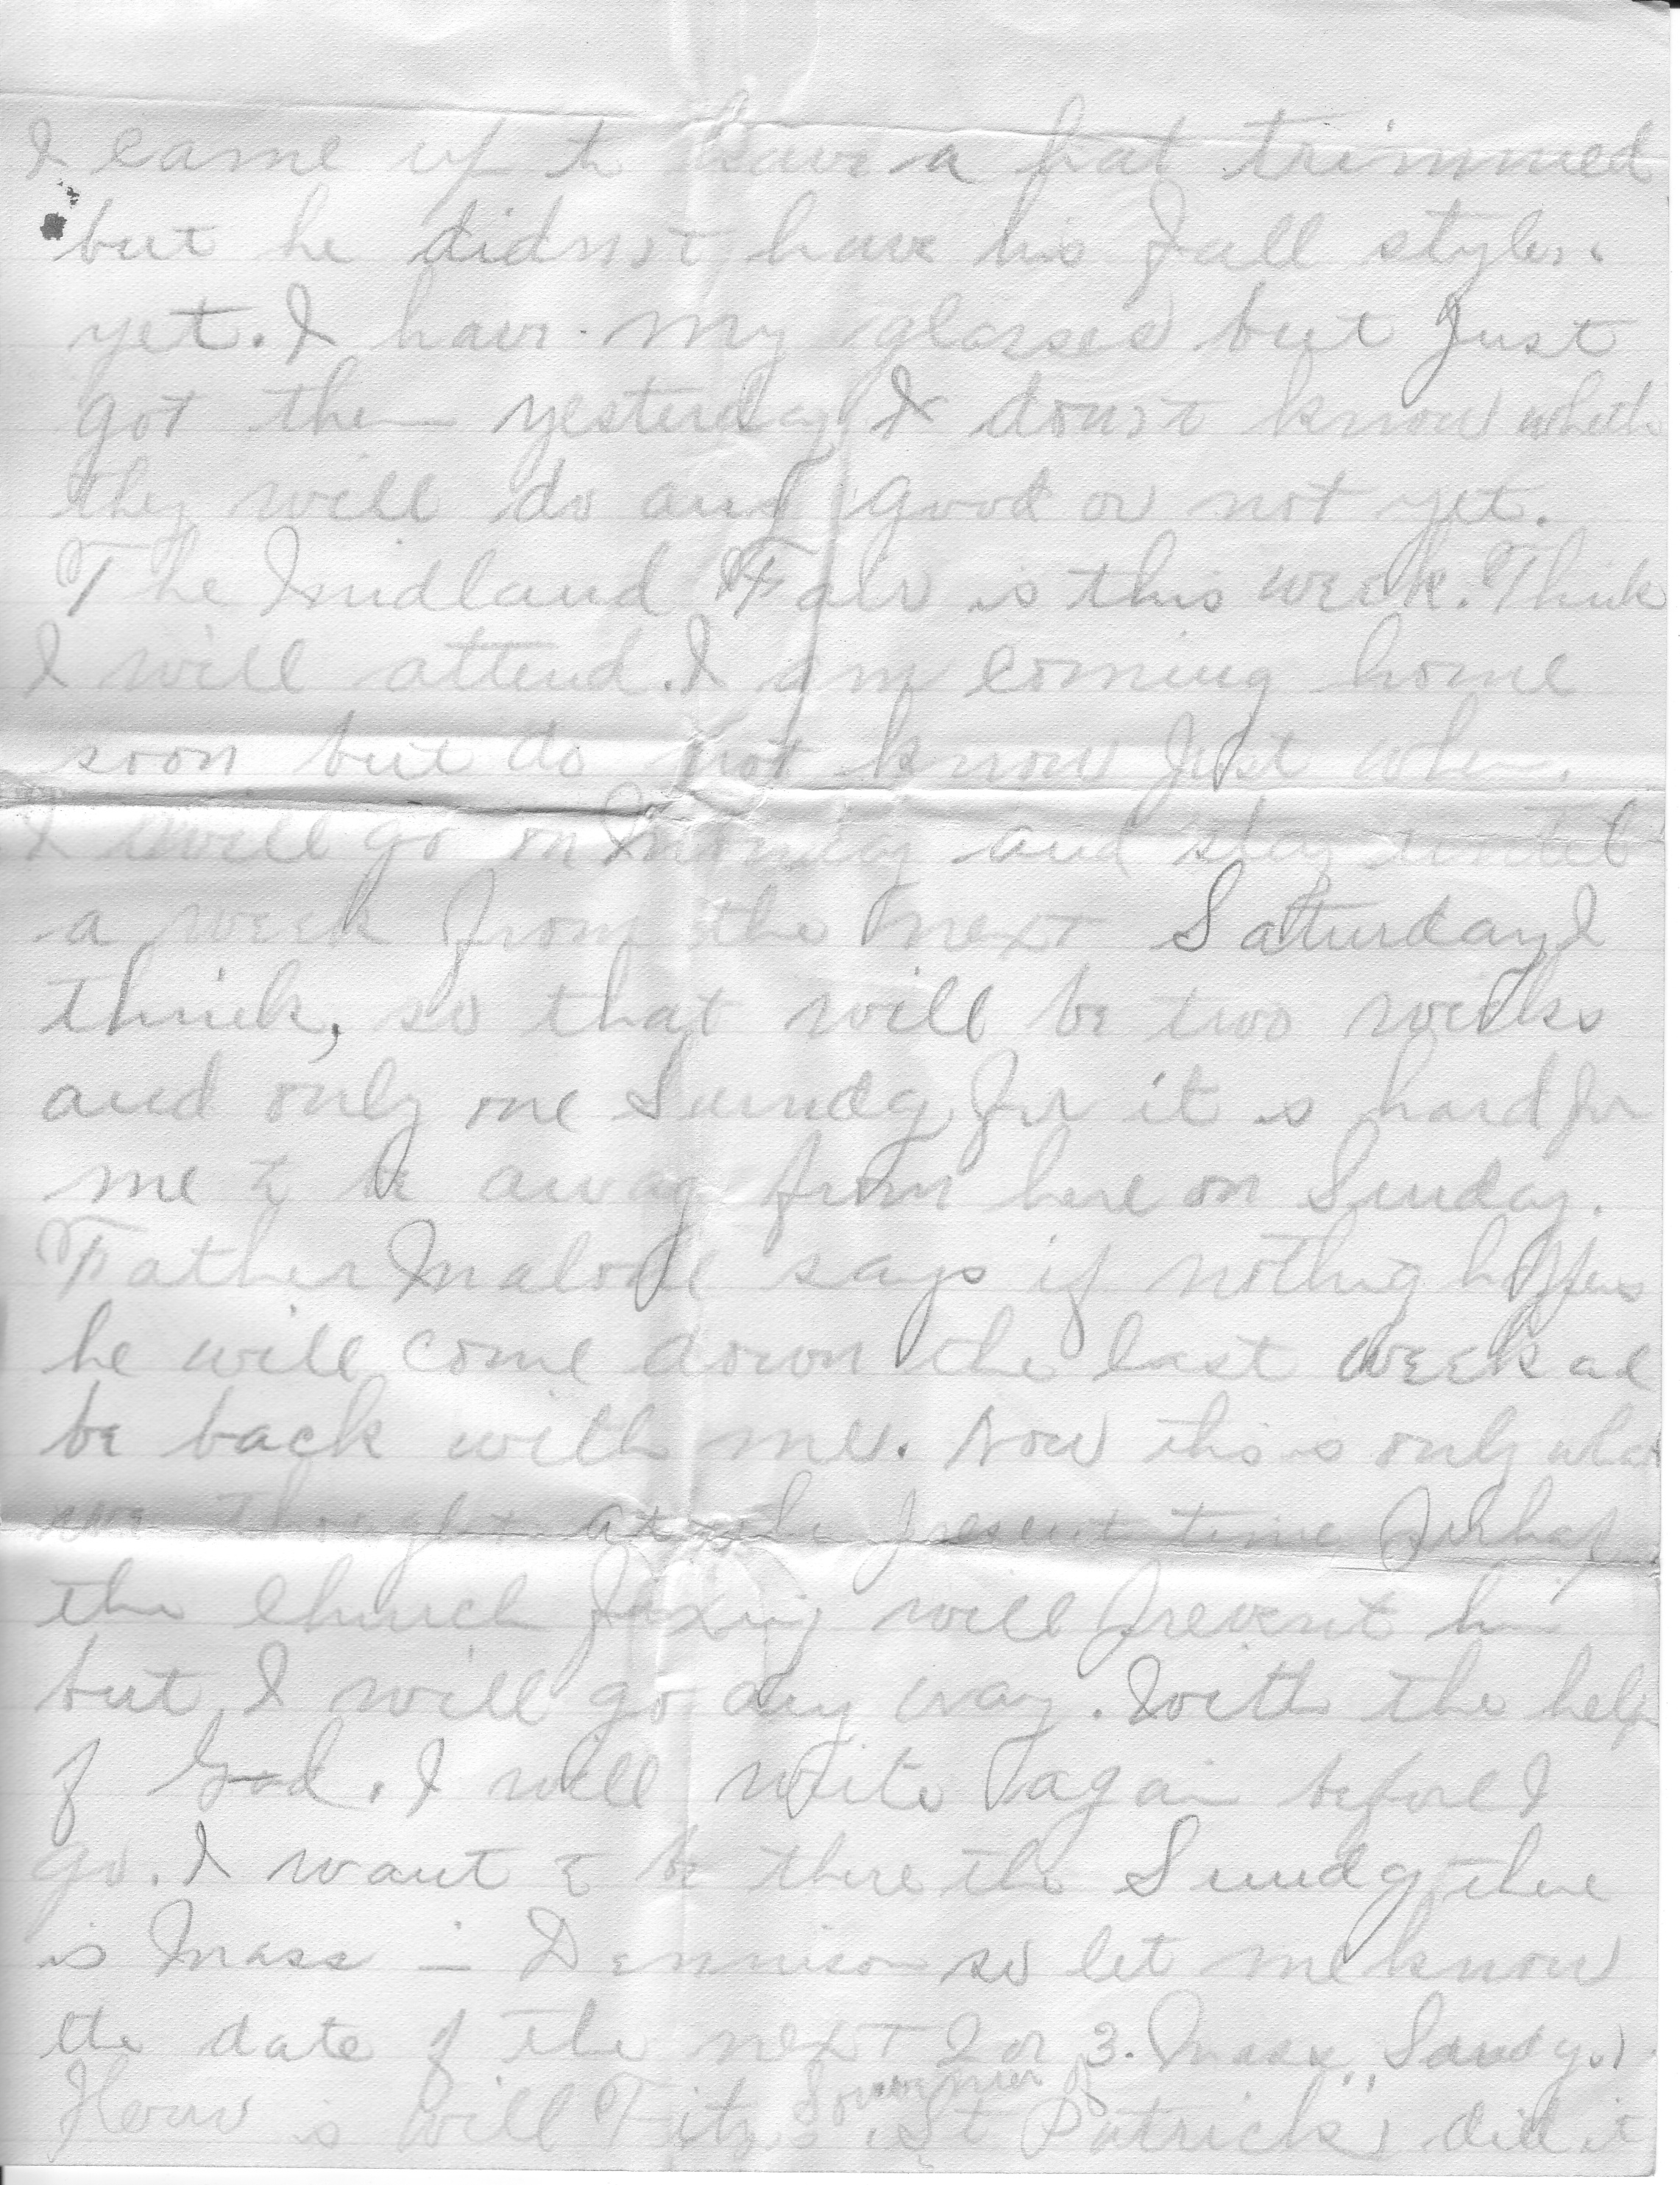 I came up to have a hat trimmed
but he didn't have his fall styles.
yet. I have my glasses but just
got them yesterday I don't know wheth
they will do any good or not yet.
The Midland Fair is this week. Think
I will attend. I am coming home
soon but do not know just when.
I will go on Monday and stay until
a week from the next Saturday I
think, so that will be two weeks
and only one Sundy for it is hard for
me to be away from here on Sunday.
Father Malone says if nothing happens
he will come down the last week ad
be back with me. Now this is only what
we thought at the present time Perhap
the church fixing will prevent him
but I will go any way. With the help
of God. I will write again before I
go. I want to be there the Sundy there
is Mass in Dennison so let me know
the date of the next 2 or 3. Mass Sundy.)
How is Will Fitz's Souvenier of "St Patrick" did it